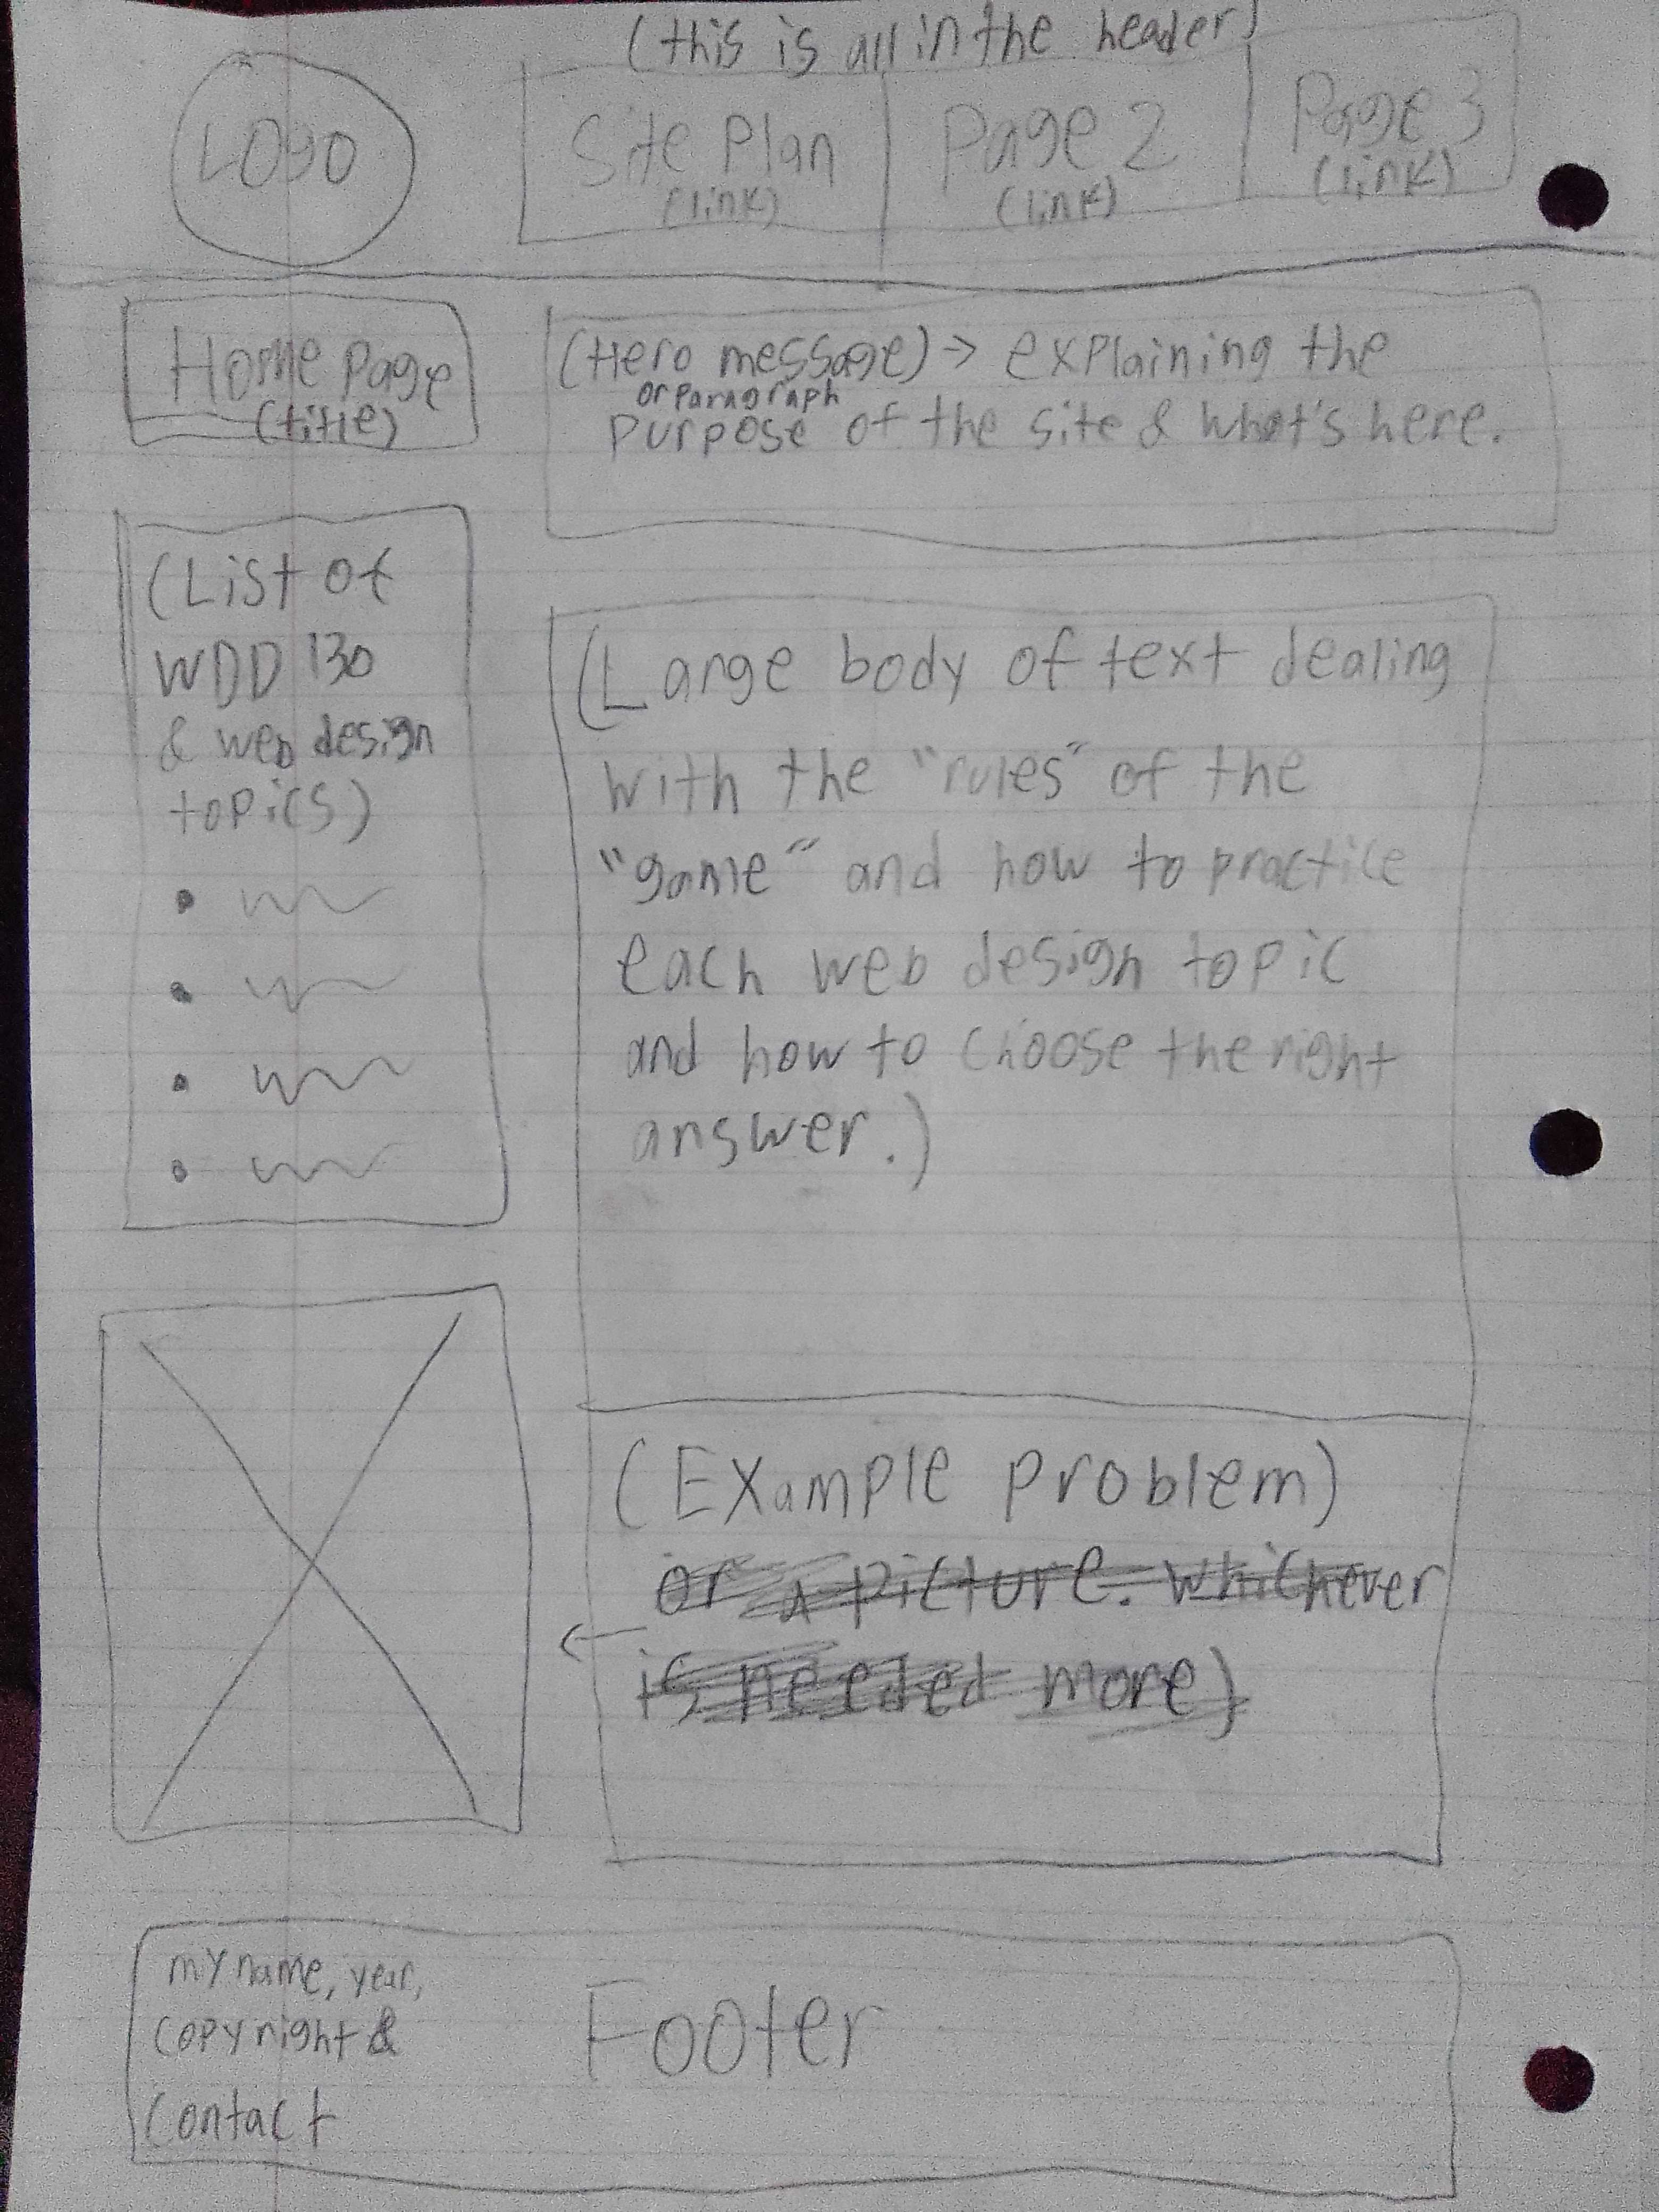 (this is all in the header)
Logo
Site Plan
(link)
Page 2
(link)
Page 3
(link)
Home Page
(title)
(Hero message) → explaining the
or paragraph
purpose of the site & what's here.
(List of
WDD 130
& web design
topics)
(Large body of text dealing
with the "rules" of the
"game" and how to practice
each web design topic
and how to choose the right
answer.)
(Example problem)
or a picture. whichever
←
is needed more)
my name, year,
copyright &
contact
Footer